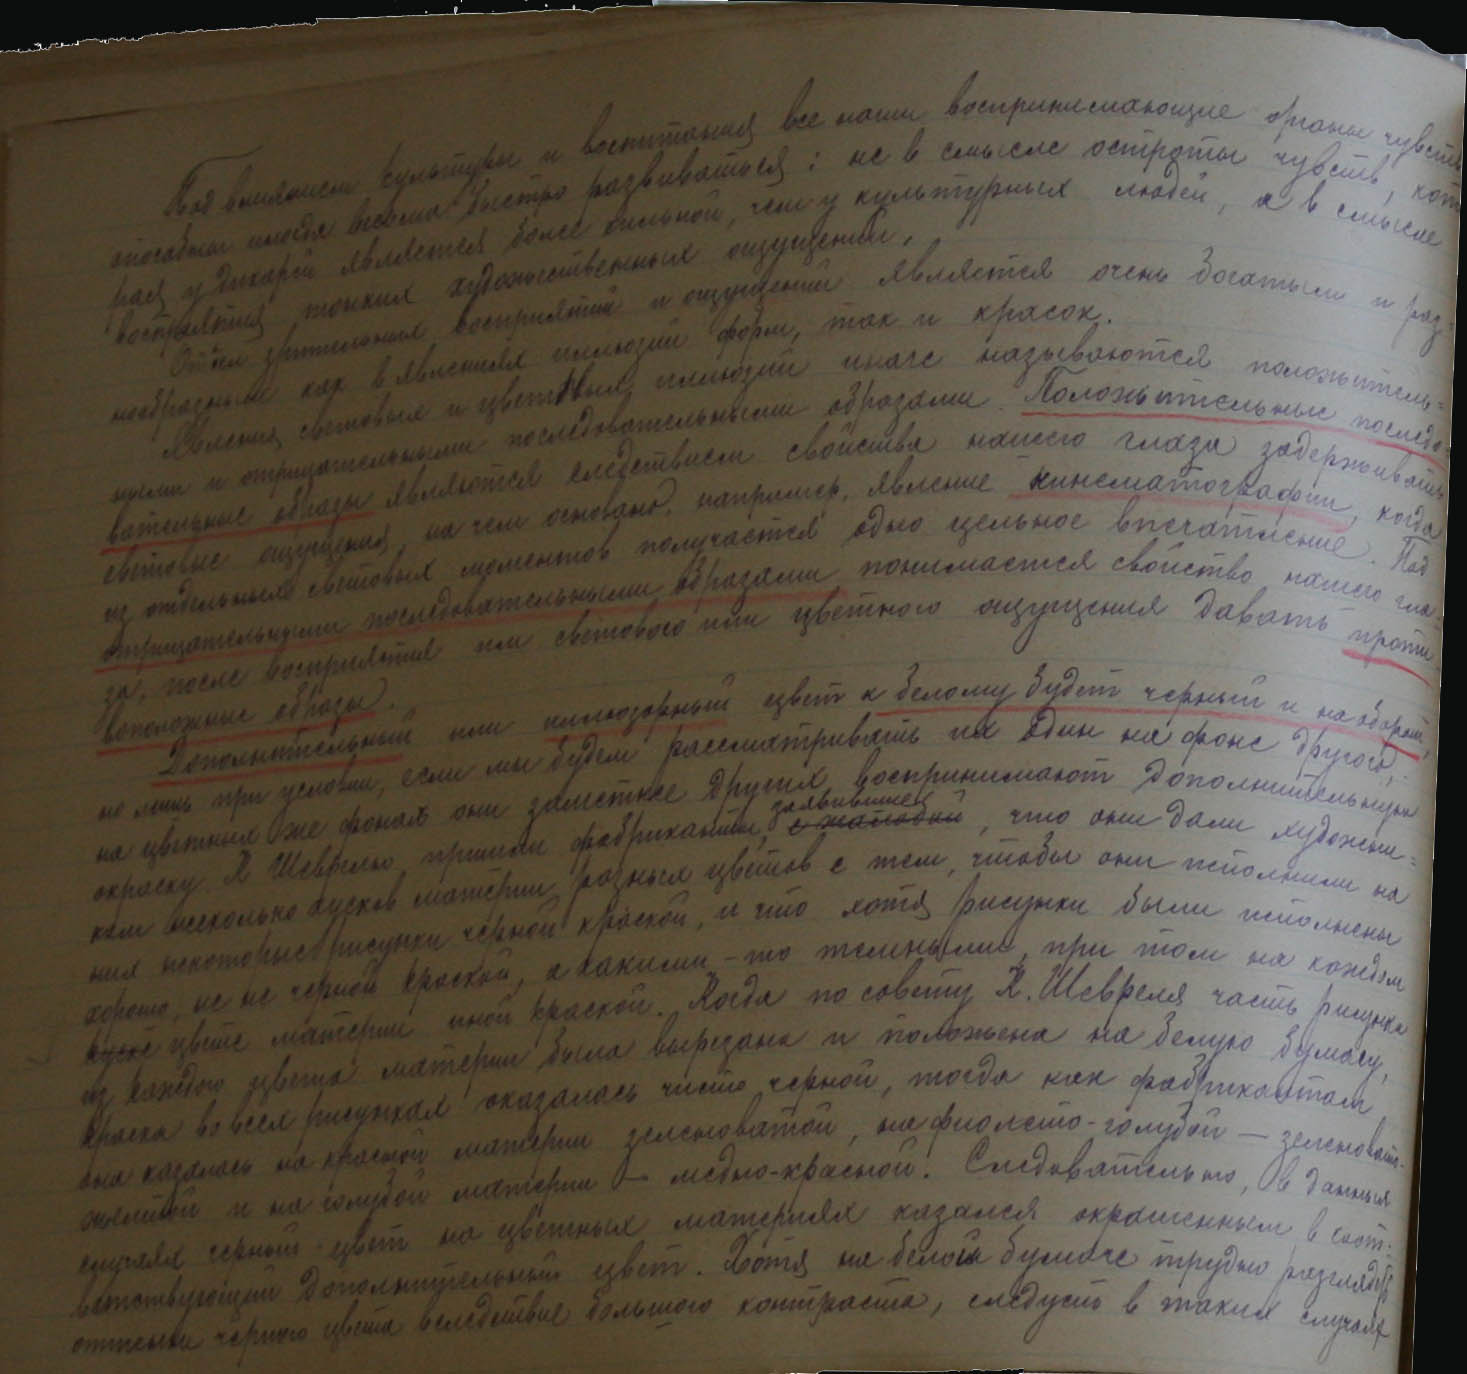 Под влиянием культуры и воспитания все наши воспринимающие органы чувств
способны иногда весьма быстро развиваться: не в смысле остроты чувств, кото
рая у дикарей является более сильной, чем у культурных людей, а в смысле
восприятия тонких художественных ощущений.
Отдел зрительных восприятий и ощущений является очень богатым и раз-
нообразным как в явлениях иллюзий форм, так и красок.
Явления световых и цветовых иллюзий иначе называются положитель=
ными и отрицательными последовательными образами. Положительные последо=
вательные образы являются следствием свойства нашего глаза задерживать
световые ощущения, на чем основано, например, явление кинематографии, когда
из отдельных световых моментов получается одно цельное впечатление. Под
отрицательными последовательными образами понимается свойство нашего гла-
за, после восприятия им светового или цветного ощущения давать проти
воположные образы.
Дополнительный или иллюзорный цвет к белому будет черный и наоборот,
но лишь при условии, если мы будем рассматривать их один на фоне другого,
на цветных же фонах они заметнее других воспринимают дополнительную
окраску. К Шеврелю пришли фабриканты, заявившие, что они дали художни=
кам несколько кусков материи разных цветов с тем, чтобы они исполнили на
них некоторые рисунки черной краской, и что хотя рисунки были исполнены
хорошо, но не черной краской, а какими-то темными, при том на каждом
куске цвете материи иной краской. Когда по совету К. Шевреля часть рисунка
из каждого цвета материи была вырезана и положена на белую бумагу,
краска во всех рисунках оказалась чисто черной, тогда как фабрикантам
она казалась на красной материи зеленоватой, на фиолето-голубой — зеленовато-
желтой и на голубой материи — медно-красной. Следовательно, в данных
случаях черный цвет на цветных материях казался окрашенным в соот-
ветствующий дополнительный цвет. Хотя на белой бумаге трудно разглядеть
оттенки черного цвета вследствие большого контраста, следует в таких случаях